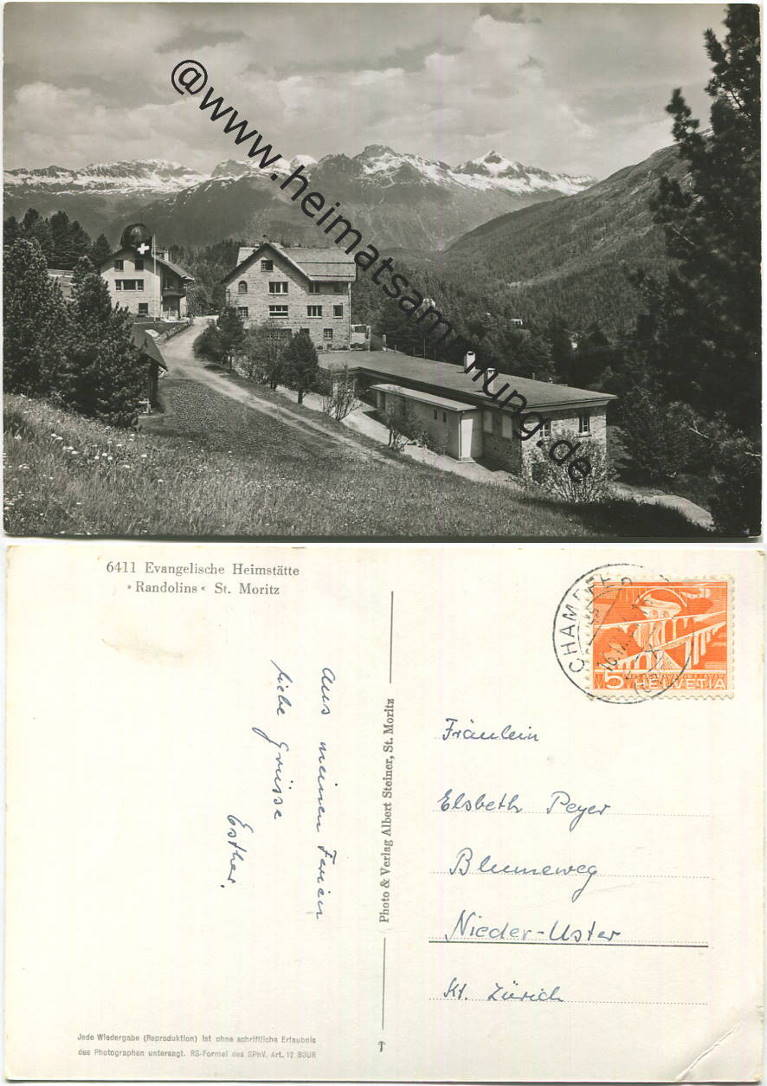 @www.heimatsammlung.de
6411 Evangelische Heimstätte
»Randolins« St. Moritz
Aus meinen Ferien
liebe Grüsse
Esther.
Photo & Verlag Albert Steiner, St. Moritz
CHAMPFER
5 HELVETIA
Fräulein
Elsbeth Peyer
Blumeweg
Nieder-Uster
Kt. Zürich
Jede Wiedergabe (Reproduktion) ist ohne schriftliche Erlaubnis
des Photographen untersagt. RS-Formel des SPhV. Art. 12 BGUR